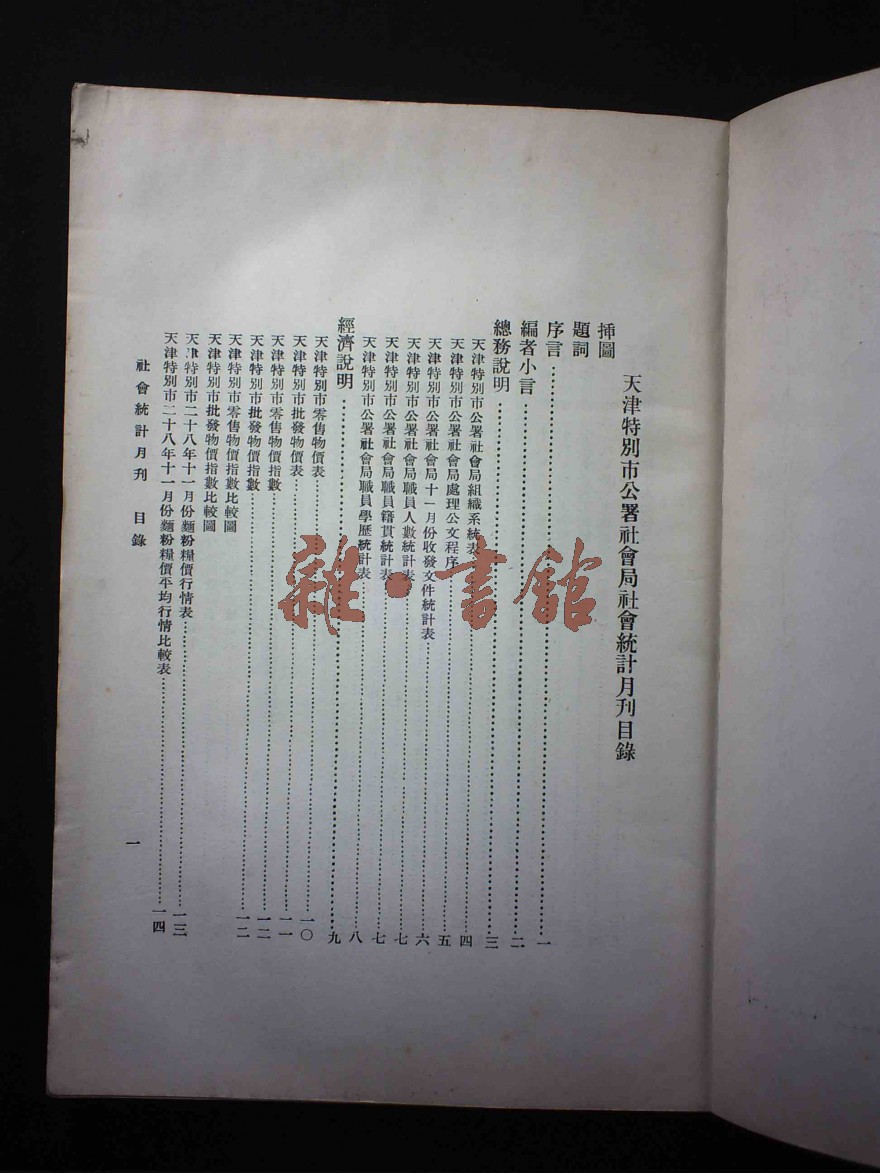 天津特別市公署社會局社會統計月刊目錄
挿圖
題詞
序言……一
編者小言……二
總務說明……三
天津特別市公署社會局組織系統表……四
天津特別市公署社會局處理公文程序……五
天津特別市公署社會局十一月份收發文件統計表……六
天津特別市公署社會局職員人數統計表……七
天津特別市公署社會局職員籍貫統計表……七
天津特別市公署社會局職員學歷統計表……八
經濟說明……九
天津特別市零售物價表……一〇
天津特別市批發物價表……一一
天津特別市零售物價指數……一二
天津特別市批發物價指數……一二
天津特別市零售物價指數比較圖
天津特別市批發物價指數比較圖
天津特別市二十八年十一月份麵粉糧價行情表……一三
天津特別市二十八年十一月份麵粉糧價平均行情比較表……一四
社會統計月刊 目錄
一
雜·書館